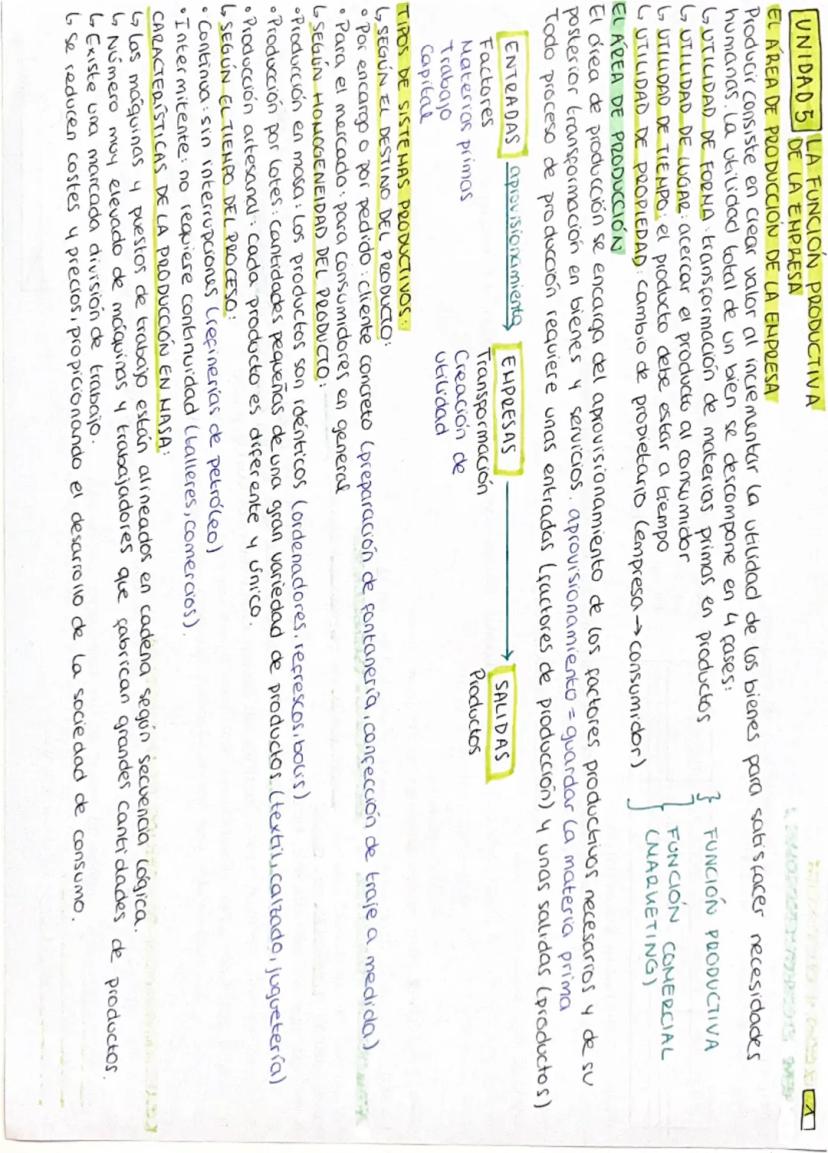 UNIDAD 5 LA FUNCIÓN PRODUCTIVA
DE LA EMPRESA
1
EL ÁREA DE PRODUCCIÓN DE LA EMPRESA
Producir consiste en crear valor al incrementar la utilidad de los bienes para satisfacer necesidades
humanas. La utilidad total de un bien se descompone en 4 fases:
↳ UTILIDAD DE FORMA: transformación de materias primas en productos } FUNCIÓN PRODUCTIVA
↳ UTILIDAD DE LUGAR: acercar el producto al consumidor
↳ UTILIDAD DE TIEMPO: el producto debe estar a tiempo
↳ UTILIDAD DE PROPIEDAD: cambio de propietario (empresa → consumidor)
} FUNCIÓN COMERCIAL
(MARKETING)
EL ÁREA DE PRODUCCIÓN
El área de producción se encarga del aprovisionamiento de los factores productivos necesarios y de su
posterior transformación en bienes y servicios. aprovisionamiento = guardar la materia prima
Todo proceso de producción requiere unas entradas (factores de producción) y unas salidas (productos)
ENTRADAS aprovisionamiento → EMPRESAS → SALIDAS
Factores Transformación Productos
Materias primas Creación de
Trabajo utilidad
Capital
TIPOS DE SISTEMAS PRODUCTIVOS:
↳ SEGÚN EL DESTINO DEL PRODUCTO:
• Por encargo o por pedido: cliente concreto (preparación de fontanería, confección de traje a medida)
• Para el mercado: para consumidores en general
↳ SEGÚN HOMOGENEIDAD DEL PRODUCTO:
• Producción en masa: los productos son idénticos (ordenadores, refrescos, bolis)
• Producción por lotes: cantidades pequeñas de una gran variedad de productos (textil, calzado, juguetería)
• Producción artesanal: cada producto es diferente y único.
↳ SEGÚN EL TIEMPO DEL PROCESO:
• Continua: sin interrupciones (refinerías de petróleo)
• Intermitente: no requiere continuidad (talleres, comercios).
CARACTERÍSTICAS DE LA PRODUCCIÓN EN MASA:
↳ Las máquinas y puestos de trabajo están alineados en cadena según secuencia lógica.
↳ Número muy elevado de máquinas y trabajadores que fabrican grandes cantidades de productos.
↳ Existe una marcada división de trabajo.
↳ Se reducen costes y precios, propiciando el desarrollo de la sociedad de consumo.